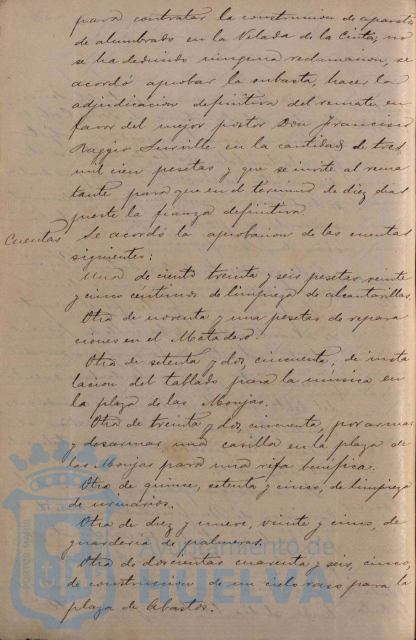 para contratar la construccion de aparatos
de alumbrado en la Velada de la Cinta, no
se ha deducido ninguna reclamacion, se
acordó aprobar la subasta, hacer la
adjudicacion definitiva del remate en
favor del mejor postor Don Francisco
Raggio Surville en la cantidad de tres
mil cien pesetas y que se invite al rema
tante para que en el termino de diez dias
preste la fianza definitiva.
Cuentas Se acordó la aprobacion de las cuentas
siguientes:
Una de ciento treinta y seis pesetas veinte
y cinco céntimos de limpieza de alcantarillas
Otra de noventa y una pesetas de repara
ciones en el Matadero.
Otra de setenta y dos, cincuenta, de insta
lacion del tablado para la música en
la plaza de las Monjas.
Otra de treinta y dos, cincuenta, por armar
y desarmar una casilla en la plaza de
las Monjas para una rifa benéfica.
Otra de quince, setenta y cinco, de limpieza
de urinarios.
Otra de diez y nueve, veinte y cinco, de
guardería de palmeras.
Otra de doscientas cuarenta y seis, cinco,
de construccion de un cielo raso para la
plaza de Abastos.
Ayuntamiento de
HUELVA